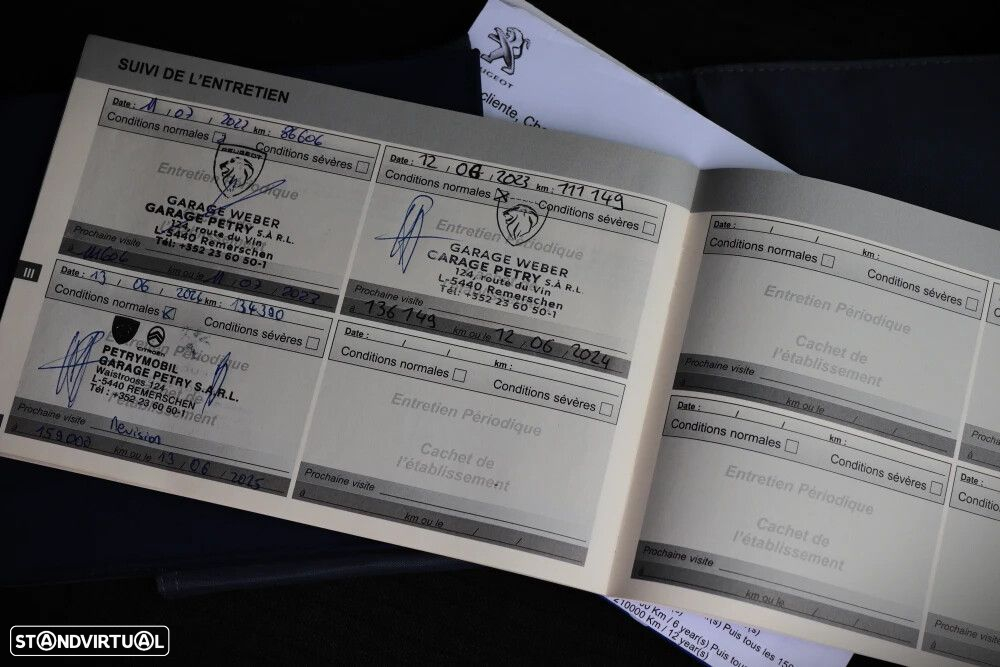 SUIVI DE L'ENTRETIEN
Date : 11 / 07 / 2022 km : 86606
Conditions normales Conditions sévères
Entretien Périodique
PEUGEOT
GARAGE WEBER
GARAGE PETRY S.À R.L.
124, route du Vin
L-5440 Remerschen
Tél: +352 23 60 50-1
Prochaine visite
à 111606 km ou le 11 / 07 / 2023
Date : 12 / 06 / 2023 km : 111 149
Conditions normales Conditions sévères
Entretien Périodique
GARAGE WEBER
GARAGE PETRY S.À R.L.
124, route du Vin
L-5440 Remerschen
Tél: +352 23 60 50-1
Prochaine visite
à 136 149 km ou le 12 / 06 / 2024
III
Date : 13 / 06 / 2024 km : 134390
Conditions normales Conditions sévères
CITROËN
PETRYMOBIL
GARAGE PETRY S.À R.L.
Waistrooss 124
L-5440 REMERSCHEN
Tél : +352 23 60 50-1
Cachet de
l'établissement
Prochaine visite Revision
à 159000 km ou le 13 / 06 / 2025
Date : / / km :
Conditions normales Conditions sévères
Entretien Périodique
Cachet de
l'établissement
Prochaine visite
à km ou le / /
Date : / / km :
Conditions normales Conditions sévères
Entretien Périodique
Cachet de
l'établissement
Prochaine visite
à km ou le / /
Date : / / km :
Conditions normales Conditions sévères
Entretien Périodique
Cachet de
l'établissement
Prochaine visite
à km ou le / /
Date :
Conditions
Prochaine
à
PEUGEOT
cliente,
Km / 6 year(s) Puis tous les
210000 Km / 12 year(s)
STANDVIRTUAL